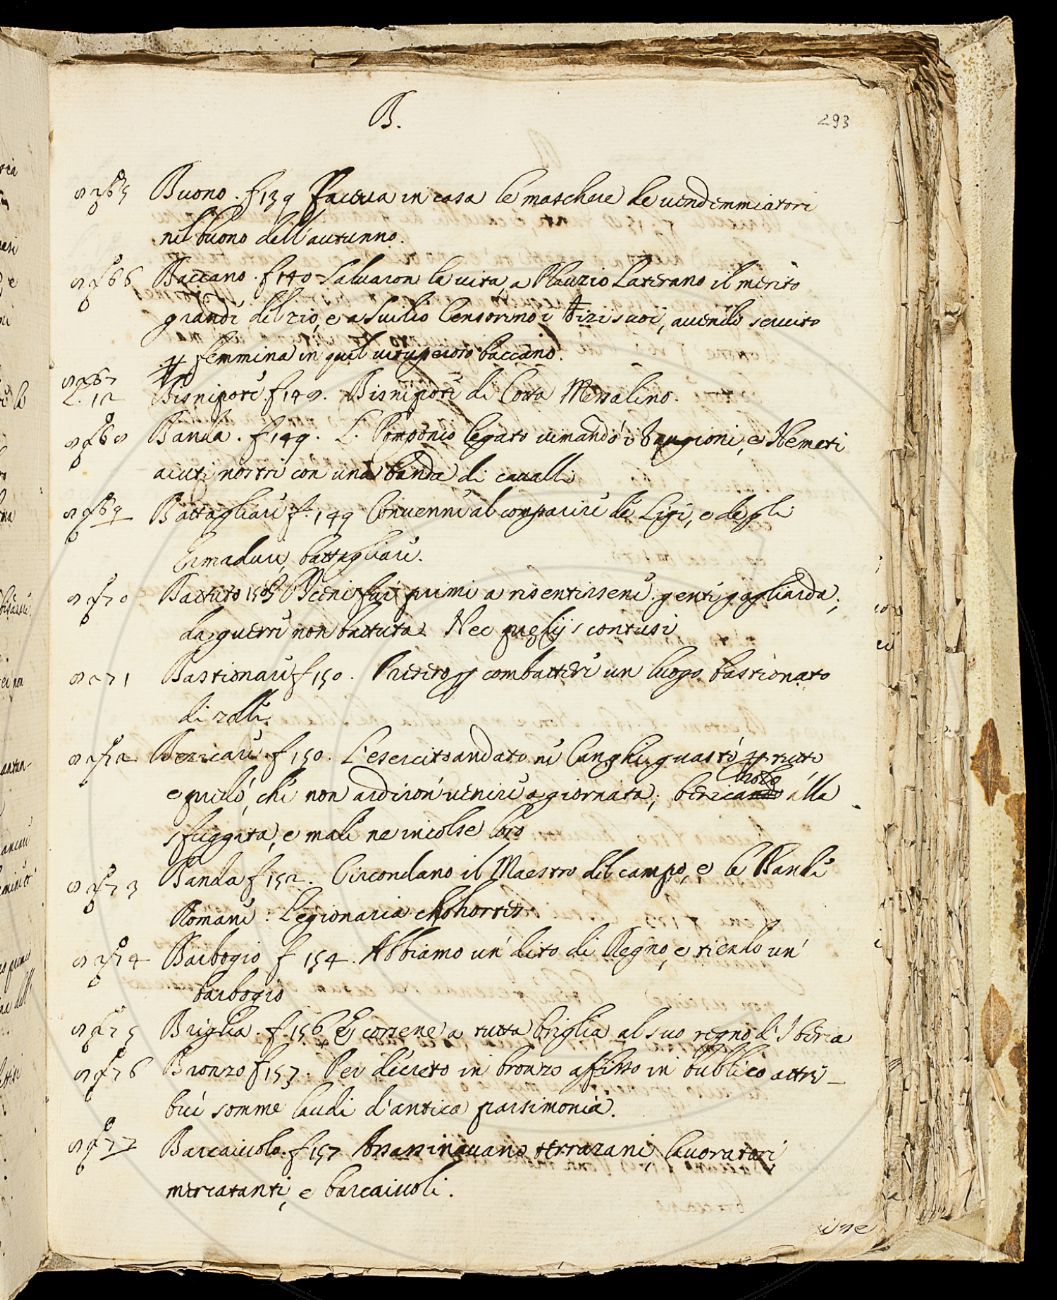 B.
293
Buono. f 139 Faceua in casa le maschere de uendemmiatori
nel buono dell'autunno.
Baccano. f 140 Saluaron la vita, a Plauzio Laterano il merito
grandi del zio, e a Suilio Censorino i Vizi suoi, auendo seruito
femmina in quel vituperoso baccano.
Bisnipote f 149. Bisnipote di Cotta Messalino.
Banda. f 149. L. Pomponio legato dimandò i Vangioni, e Nemeti
aiuti nostri con una banda di caualli
Battagliare f. 149 Conuenne al comparire de Ligi, e degli
Ermaduri, battagliare.
Battuto 150 Iceni fur primi a risentirsene genti gagliarda,
da guerre non battuta. Nec praelijs contusi
Bastionare f 150. Presero a combattere un luogo bastionato
di zolle.
Bezzicare f 150. L'esercito andato ne Canghi guastò
e rubò, che non ardiron uenire a giornata; alla
sfuggita, e male ne incolse loro
Banda f 152. Circondano il Maestro del campo, e le Bande
Romane: Legionarias cohortes
Barbogio f 154. Abbiamo un dito di Regno, e tienlo un
barbogio
Briglia. f 156 E corsene a tutta briglia al suo regno d'Iberia
Bronzo f 157. Per decreto in bronzo affisso in publico attri-
bui somme laudi d'antica parsimonia.
Barcaiuolo. f 157 Assassinauano terrazzani lauoratori
mercatanti, e barcaiuoli.